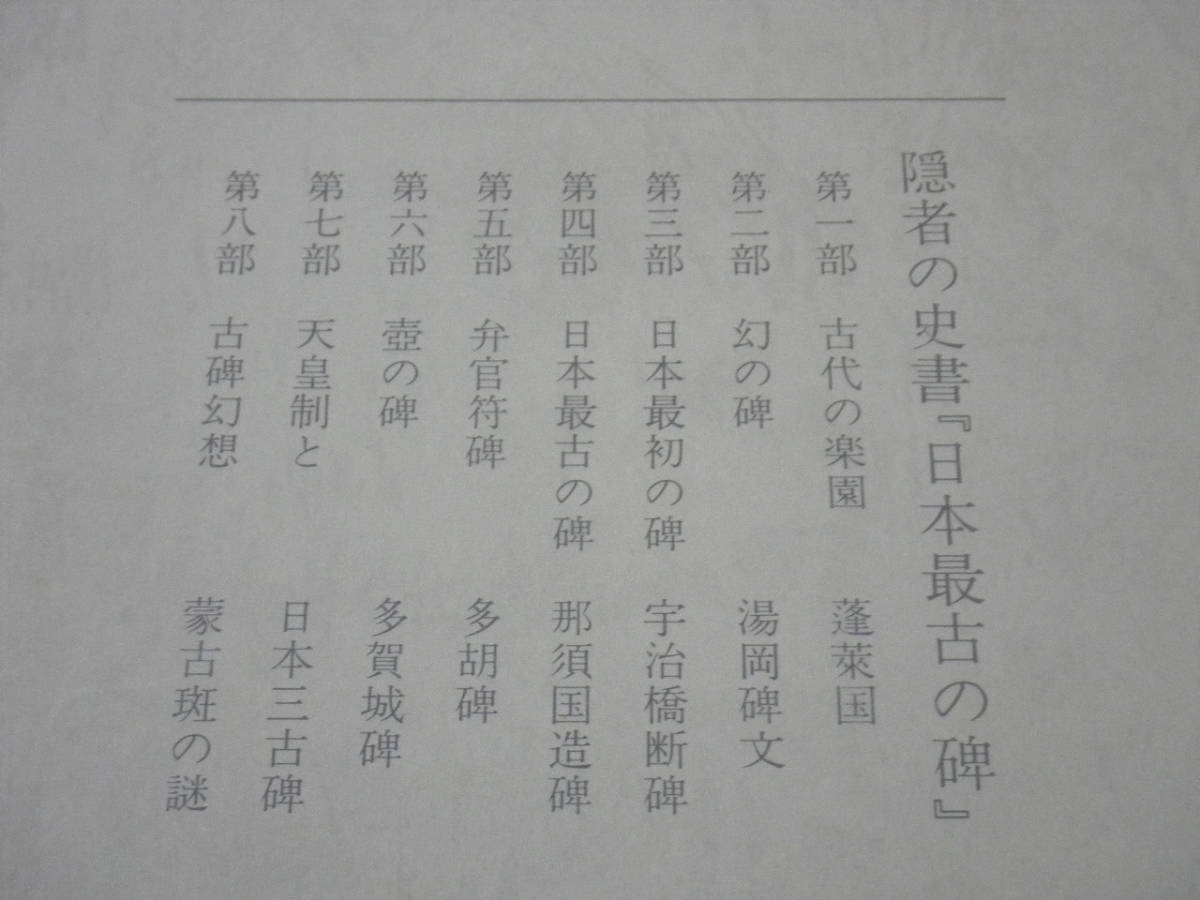 隠者の史書『日本最古の碑』
第一部 古代の楽園 蓬萊国
第二部 幻の碑 湯岡碑文
第三部 日本最初の碑 宇治橋断碑
第四部 日本最古の碑 那須国造碑
第五部 弁官符碑 多胡碑
第六部 壺の碑 多賀城碑
第七部 天皇制と 日本三古碑
第八部 古碑幻想 蒙古斑の謎